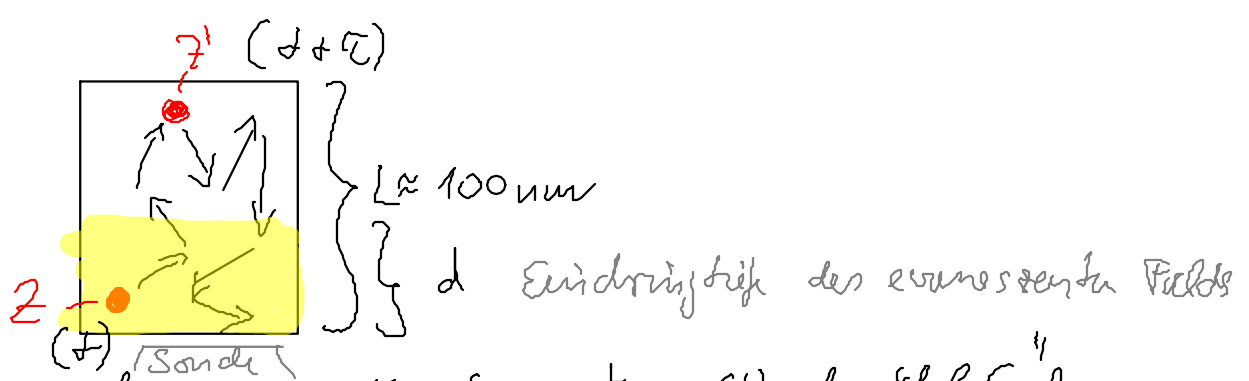 z' (t+τ)
L≈ 100nm
d Eindringtiefe des evaneszenten Felds
z
(t)
Sonde